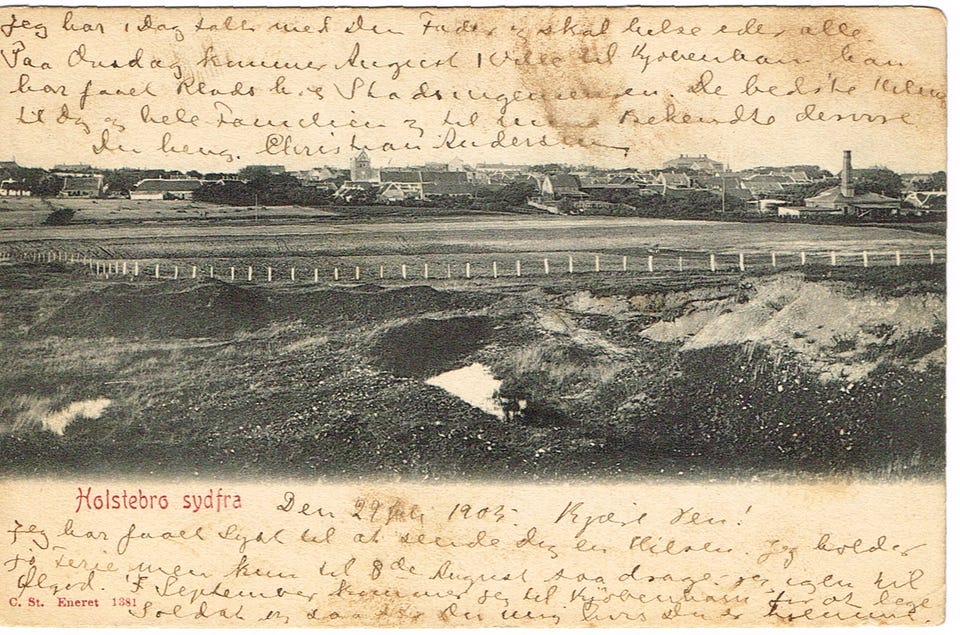 Jeg har i Dag talt med Din Fader og skal hilse eder alle
Paa Onsdag kommer August Wille til Kjøbenhavn han
har faaet Plads h. Stadsingeniøren. De bedste Hilsn
til Dig og hele Familien og til Bekendte
Din heng. Christian Andersen
Holstebro sydfra
Den 29 Juli 1905. Kjære Ven!
Jeg har faaet Lyst til at sende Dig en Hilsen. Jeg holder
jo Ferie men kun til 8de August saa drager jeg igen til
Ølgod. I September kommer jeg til Kjøbenhavn for at
C. St. Eneret 1381
Soldat og saa Du mig hvis Du er